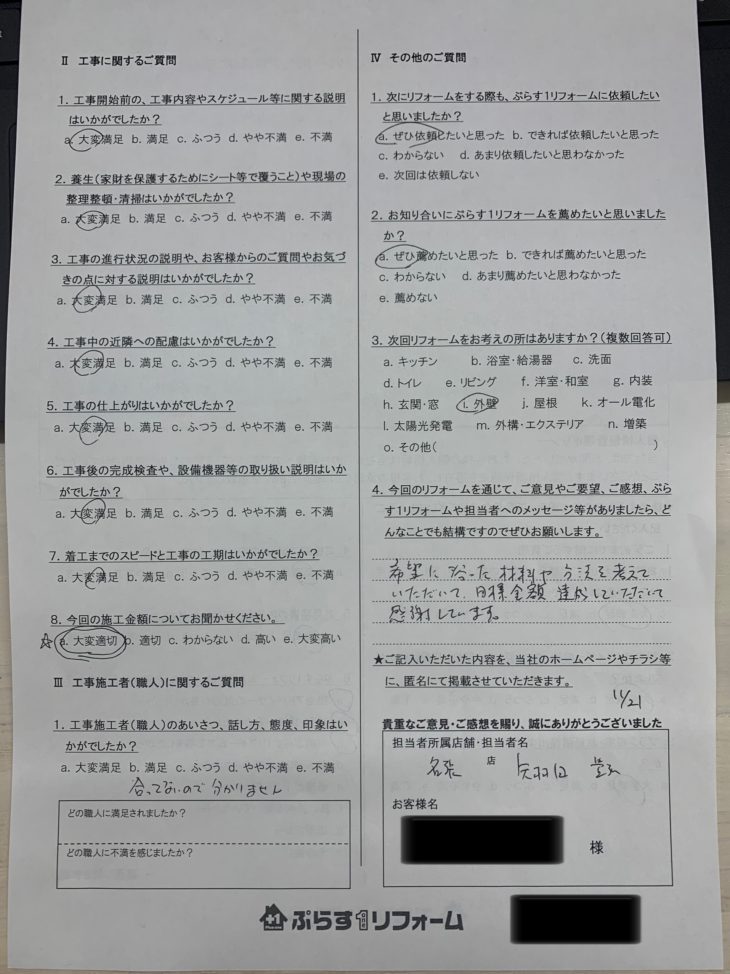 Ⅱ 工事に関するご質問
1. 工事開始前の、工事内容やスケジュール等に関する説明
はいかがでしたか?
a. 大変満足 b. 満足 c. ふつう d. やや不満 e. 不満
2. 養生(家財を保護するためにシート等で覆うこと)や現場の
整理整頓・清掃はいかがでしたか?
a. 大変満足 b. 満足 c. ふつう d. やや不満 e. 不満
3. 工事の進行状況の説明や、お客様からのご質問やお気づ
きの点に対する説明はいかがでしたか?
a. 大変満足 b. 満足 c. ふつう d. やや不満 e. 不満
4. 工事中の近隣への配慮はいかがでしたか?
a. 大変満足 b. 満足 c. ふつう d. やや不満 e. 不満
5. 工事の仕上がりはいかがでしたか?
a. 大変満足 b. 満足 c. ふつう d. やや不満 e. 不満
6. 工事後の完成検査や、設備機器等の取り扱い説明はいか
がでしたか?
a. 大変満足 b. 満足 c. ふつう d. やや不満 e. 不満
7. 着工までのスピードと工事の工期はいかがでしたか?
a. 大変満足 b. 満足 c. ふつう d. やや不満 e. 不満
8. 今回の施工金額についてお聞かせください。
☆ a. 大変適切 b. 適切 c. わからない d. 高い e. 大変高い
Ⅲ 工事施工者(職人)に関するご質問
1. 工事施工者(職人)のあいさつ、話し方、態度、印象はい
かがでしたか?
a. 大変満足 b. 満足 c. ふつう d. やや不満 e. 不満
合ってないので分かりません
どの職人に満足されましたか?
どの職人に不満を感じましたか?
Ⅳ その他のご質問
1. 次にリフォームをする際も、ぷらす1リフォームに依頼したい
と思いましたか?
a. ぜひ依頼したいと思った b. できれば依頼したいと思った
c. わからない d. あまり依頼したいと思わなかった
e. 次回は依頼しない
2. お知り合いにぷらす1リフォームを薦めたいと思いました
か?
a. ぜひ薦めたいと思った b. できれば薦めたいと思った
c. わからない d. あまり薦めたいと思わなかった
e. 薦めない
3. 次回リフォームをお考えの所はありますか?(複数回答可)
a. キッチン b. 浴室・給湯器 c. 洗面
d. トイレ e. リビング f. 洋室・和室 g. 内装
h. 玄関・窓 i. 外壁 j. 屋根 k. オール電化
l. 太陽光発電 m. 外構・エクステリア n. 増築
o. その他( )
4. 今回のリフォームを通じて、ご意見やご要望、ご感想、ぷら
す1リフォームや担当者へのメッセージ等がありましたら、ど
んなことでも結構ですのでぜひお願いします。
希望に沿った材料や方法を考えて
いただいて、目標金額達成していただいて
感謝しています。
★ご記入いただいた内容を、当社のホームページやチラシ等
に、匿名にて掲載させていただきます。
11/21
貴重なご意見・ご感想を賜り、誠にありがとうございました
担当者所属店舗・担当者名
名張 店 矢羽田
お客様名
様
+1 ぷらす1リフォーム